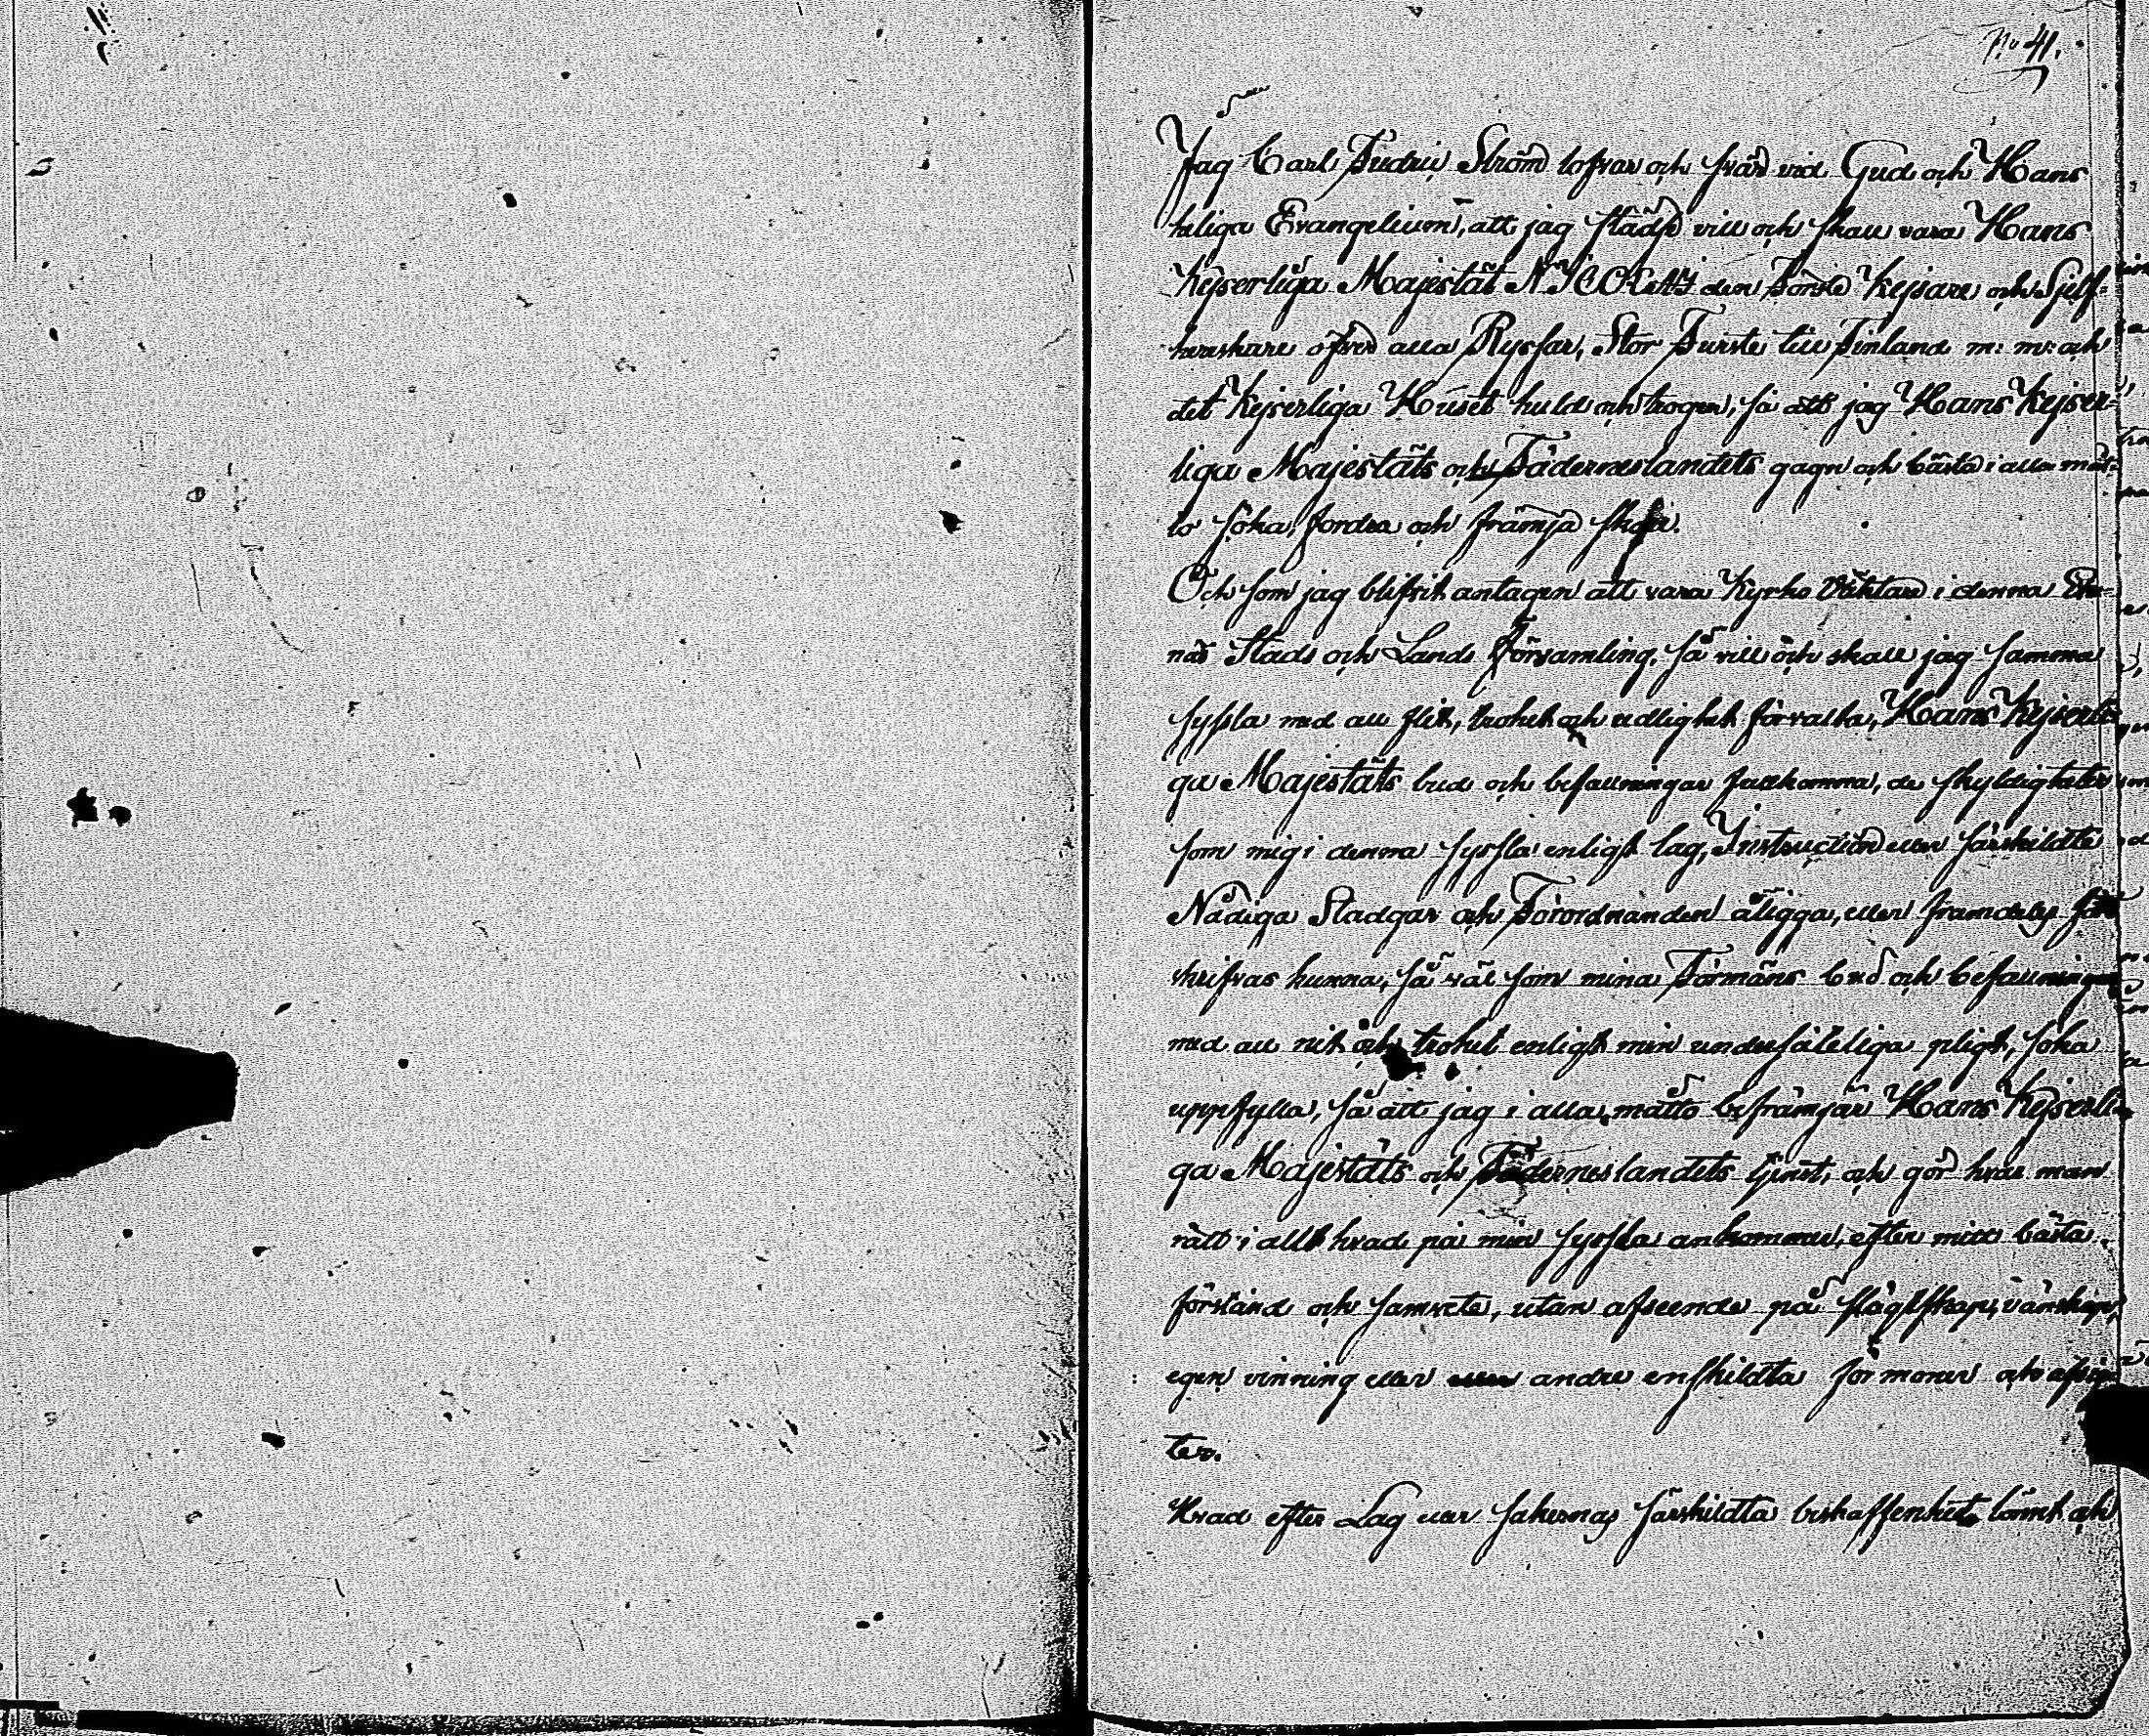 No 41.
Jag Carl Fredric Ström lofvar och svär vid Gud och Hans
heliga Evangelium, att jag städse vill och skall vara Hans
Kejserliga Majestät NICOLAI den Förste Kejsare och Sjelf-
herskare öfver alla Ryssar, Stor Furste till Finland m: m: och
det Kejserliga Huset huld och trogen, så att jag Hans Kejser-
liga Majestäts och Fäderneslandets gagn och bästa i alla måt-
to söka, fordra och främja skall.
Och som jag blifvit antagen att vara Kyrko Väktare i denna Eke-
näs Stads och Lands Församling, så vill och skall jag samma
syssla med all flit, trohet och redlighet förvalta, Hans Kejserli-
ga Majestäts bud och befallningar fullkomna, de skyldigheter
som mig i denna syssla enligt lag, Instruction eller särskildte
Nådiga Stadgar och Förordnanden åligga, eller framdeles före
skrifvas kunna, så väl som mina Förmäns bud och befallningar
med all nit och trohet enligt min undersåteliga pligt, söka
uppfylla, så att jag i alla måtto befrämjar Hans Kejserli-
ga Majestäts och Fäderneslandets tjenst, och gör hvar man
rätt i allt hvad på min syssla ankommer, efter mitt bästa
förstånd och samvete, utan afseende på slägtskap, vänskap,
egen vinning eller andre enskildta förmoner och afsig-
ter.
Hvad efter Lag eller sakernas särskildta beskaffenhet lämt och